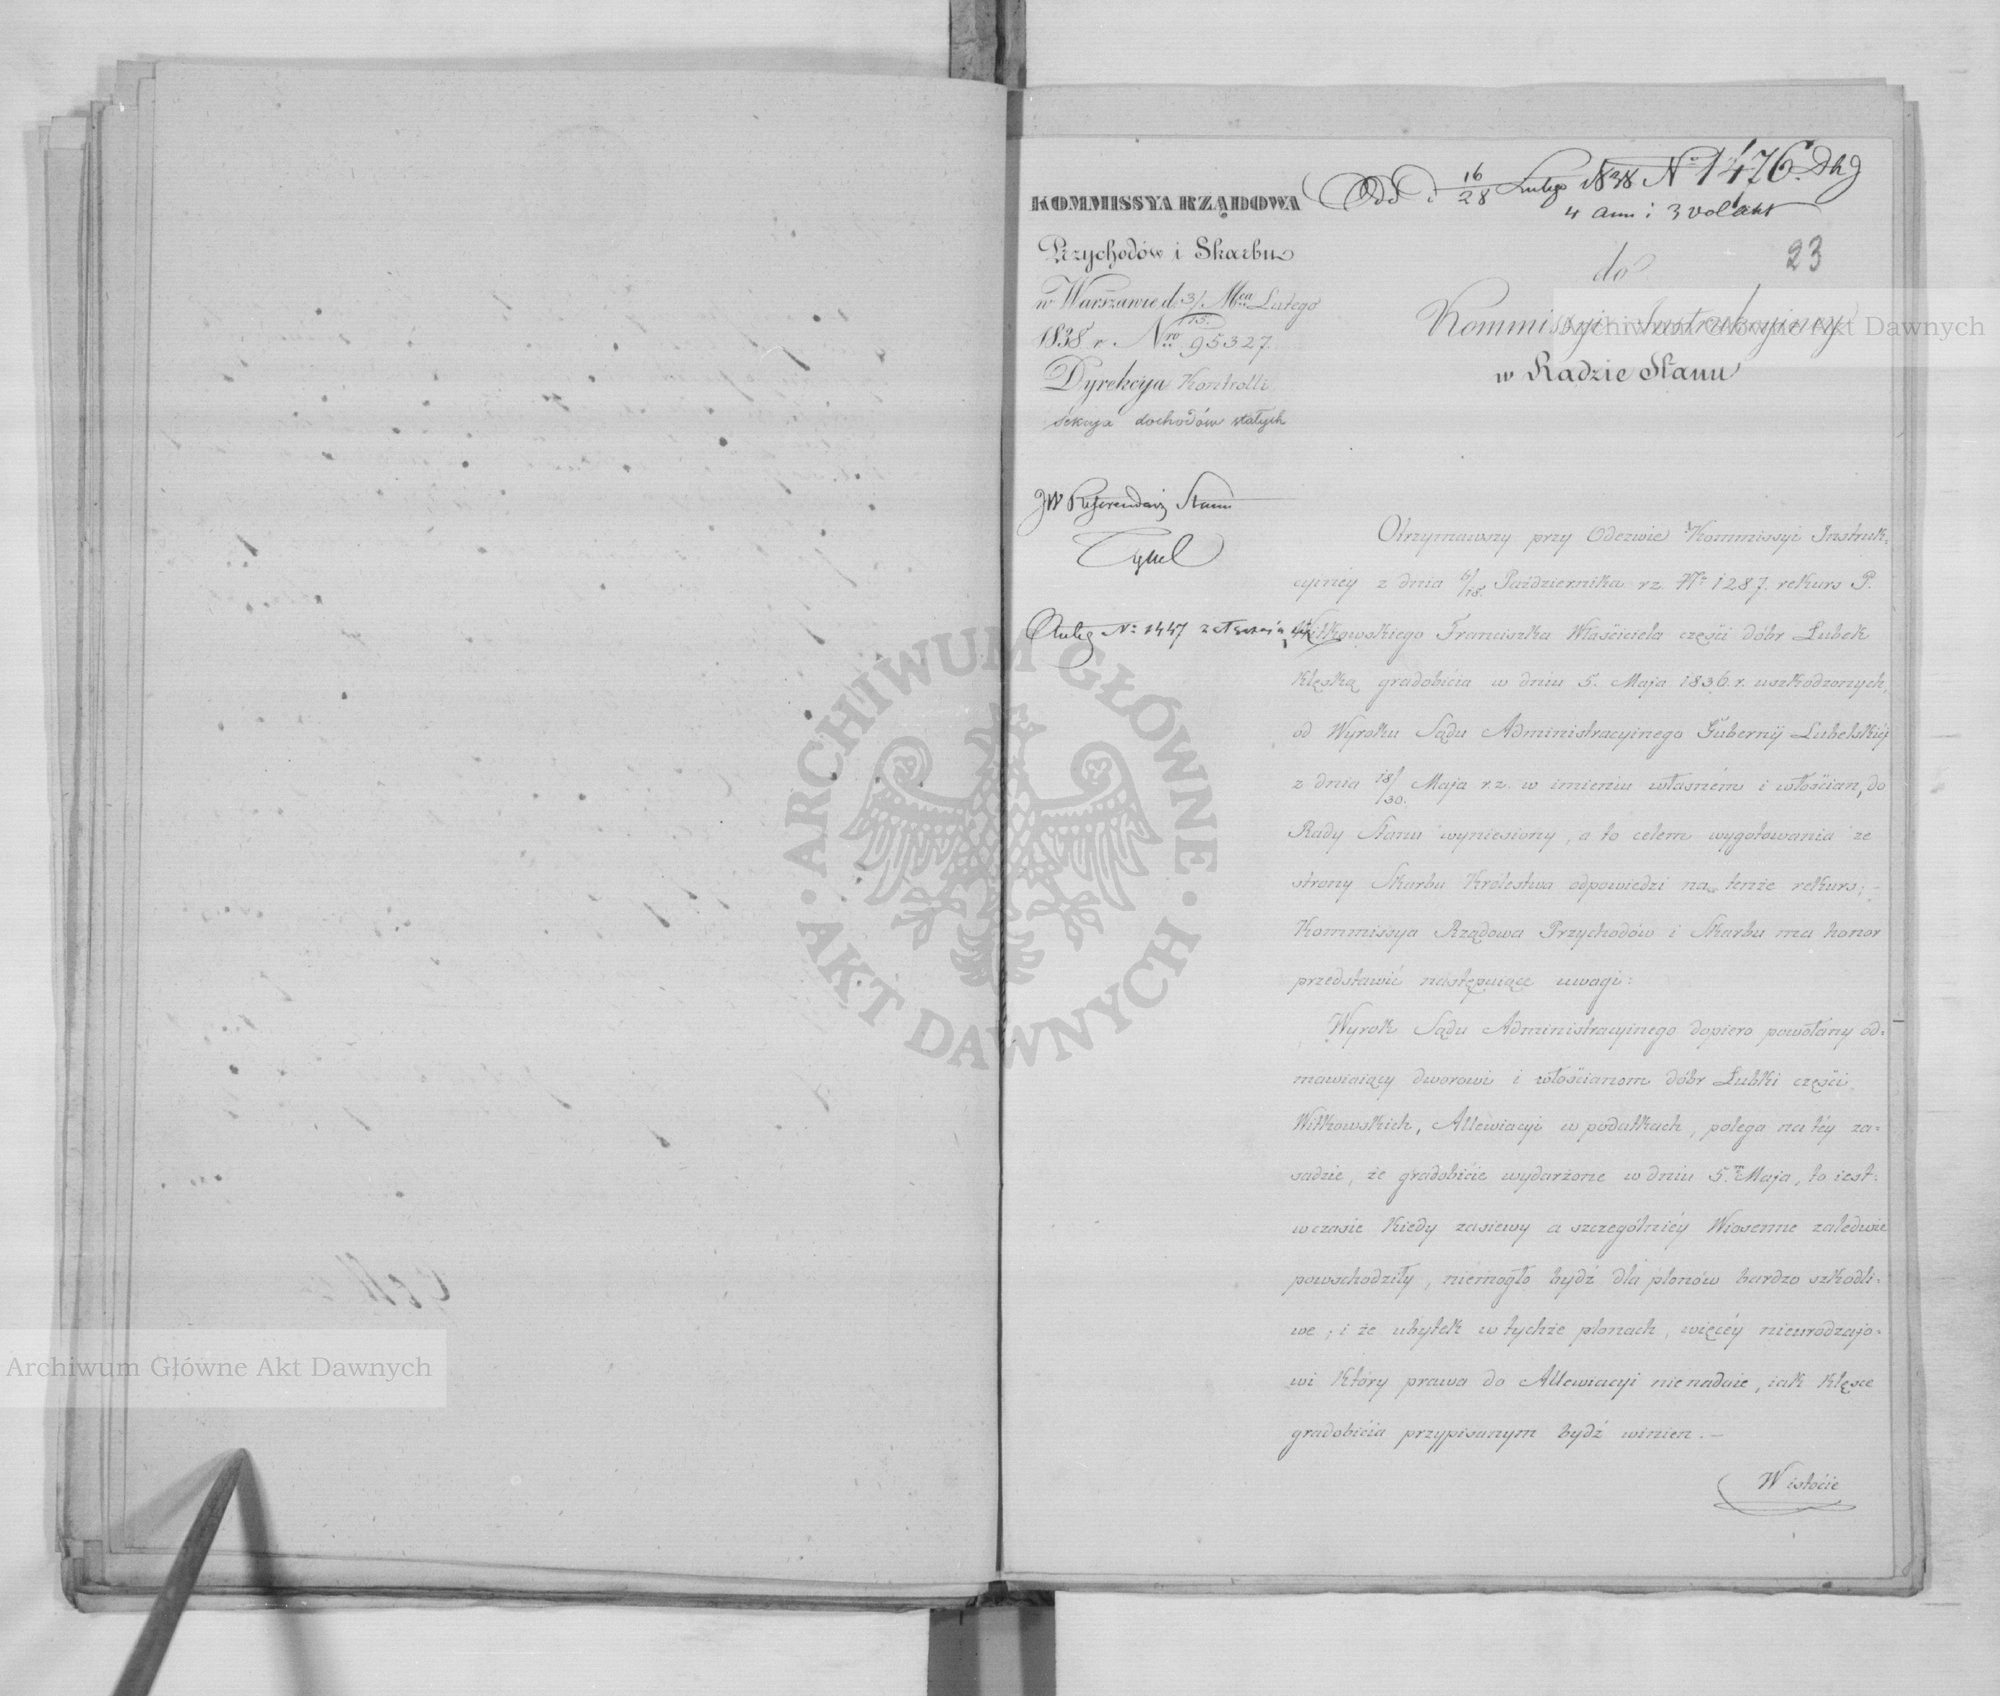 Odd d 16/28 Lutego 1838 No 1476. Dkg
4 ann i 3 vol akt
23
KOMMISSYA RZĄDOWA
Przychodów i Skarbu
w Warszawie d. 3/15. Mca Lutego
1838 r. Nro 95327.
Dyrekcya Kontrolli
Sekcya dochodów stałych
do
Kommissyi Instrukcyiney
w Radzie Stanu
JW Referendarz Stanu
No 1447
Otrzymawszy przy Odezwie Kommissyi Instruk=
cyiney z dnia 6/18. Października r.z. No 1287. rekurs P.
Witkowskiego Franciszka Właściciela części dóbr Łubek
klęską gradobicia w dniu 5. Maja 1836 r. uszkodzonych,
od Wyroku Sądu Administracyinego Gubernij Lubelskiéj
z dnia 18/30. Maja r.z. w imieniu własném i włościan, do
Rady Stanu wyniesiony, a to celem wygotowania ze
strony Skarbu Królestwa odpowiedzi na tenże rekurs; –
Kommissya Rządowa Przychodów i Skarbu ma honor
przedstawić następuiące uwagi:
Wyrok Sądu Administracyinego dopiero powołany od=
mawiaiący dworowi i włościanom dóbr Łubki części
Witkowskich, Allewiacyi w podatkach, polega na téy za=
sadzie, że gradobicie wydarzone w dniu 5. Maja, to iest:
w czasie kiedy zasiewy a szczególniéy Wiosenne zaledwie
powschodziły, niemogło bydź dla plonów bardzo szkodli=
we; i że ubytek w tychże plonach, więcéy nieurodzajo=
wi który prawa do Allewiacyi nienadaie, iak klęsce
gradobicia przypisanym bydź winien. –
W istocie
ARCHIWUM GŁÓWNE
AKT DAWNYCH
Archiwum Główne Akt Dawnych
Archiwum Główne Akt Dawnych